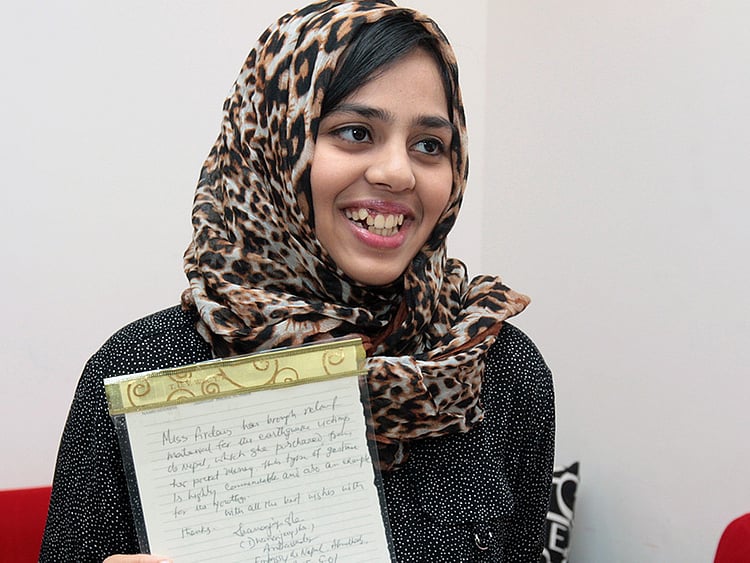 Miss Ardais has brough relief
material for the earthquake victims
to Nepal, which she purchased from
her pocket money. This type of gesture
is highly commendable and also an example
for the youths.
with all the best wishes with
thanks.
(Dhananjay Jha)
Ambassador
Embassy of Nepal, Abudhabi